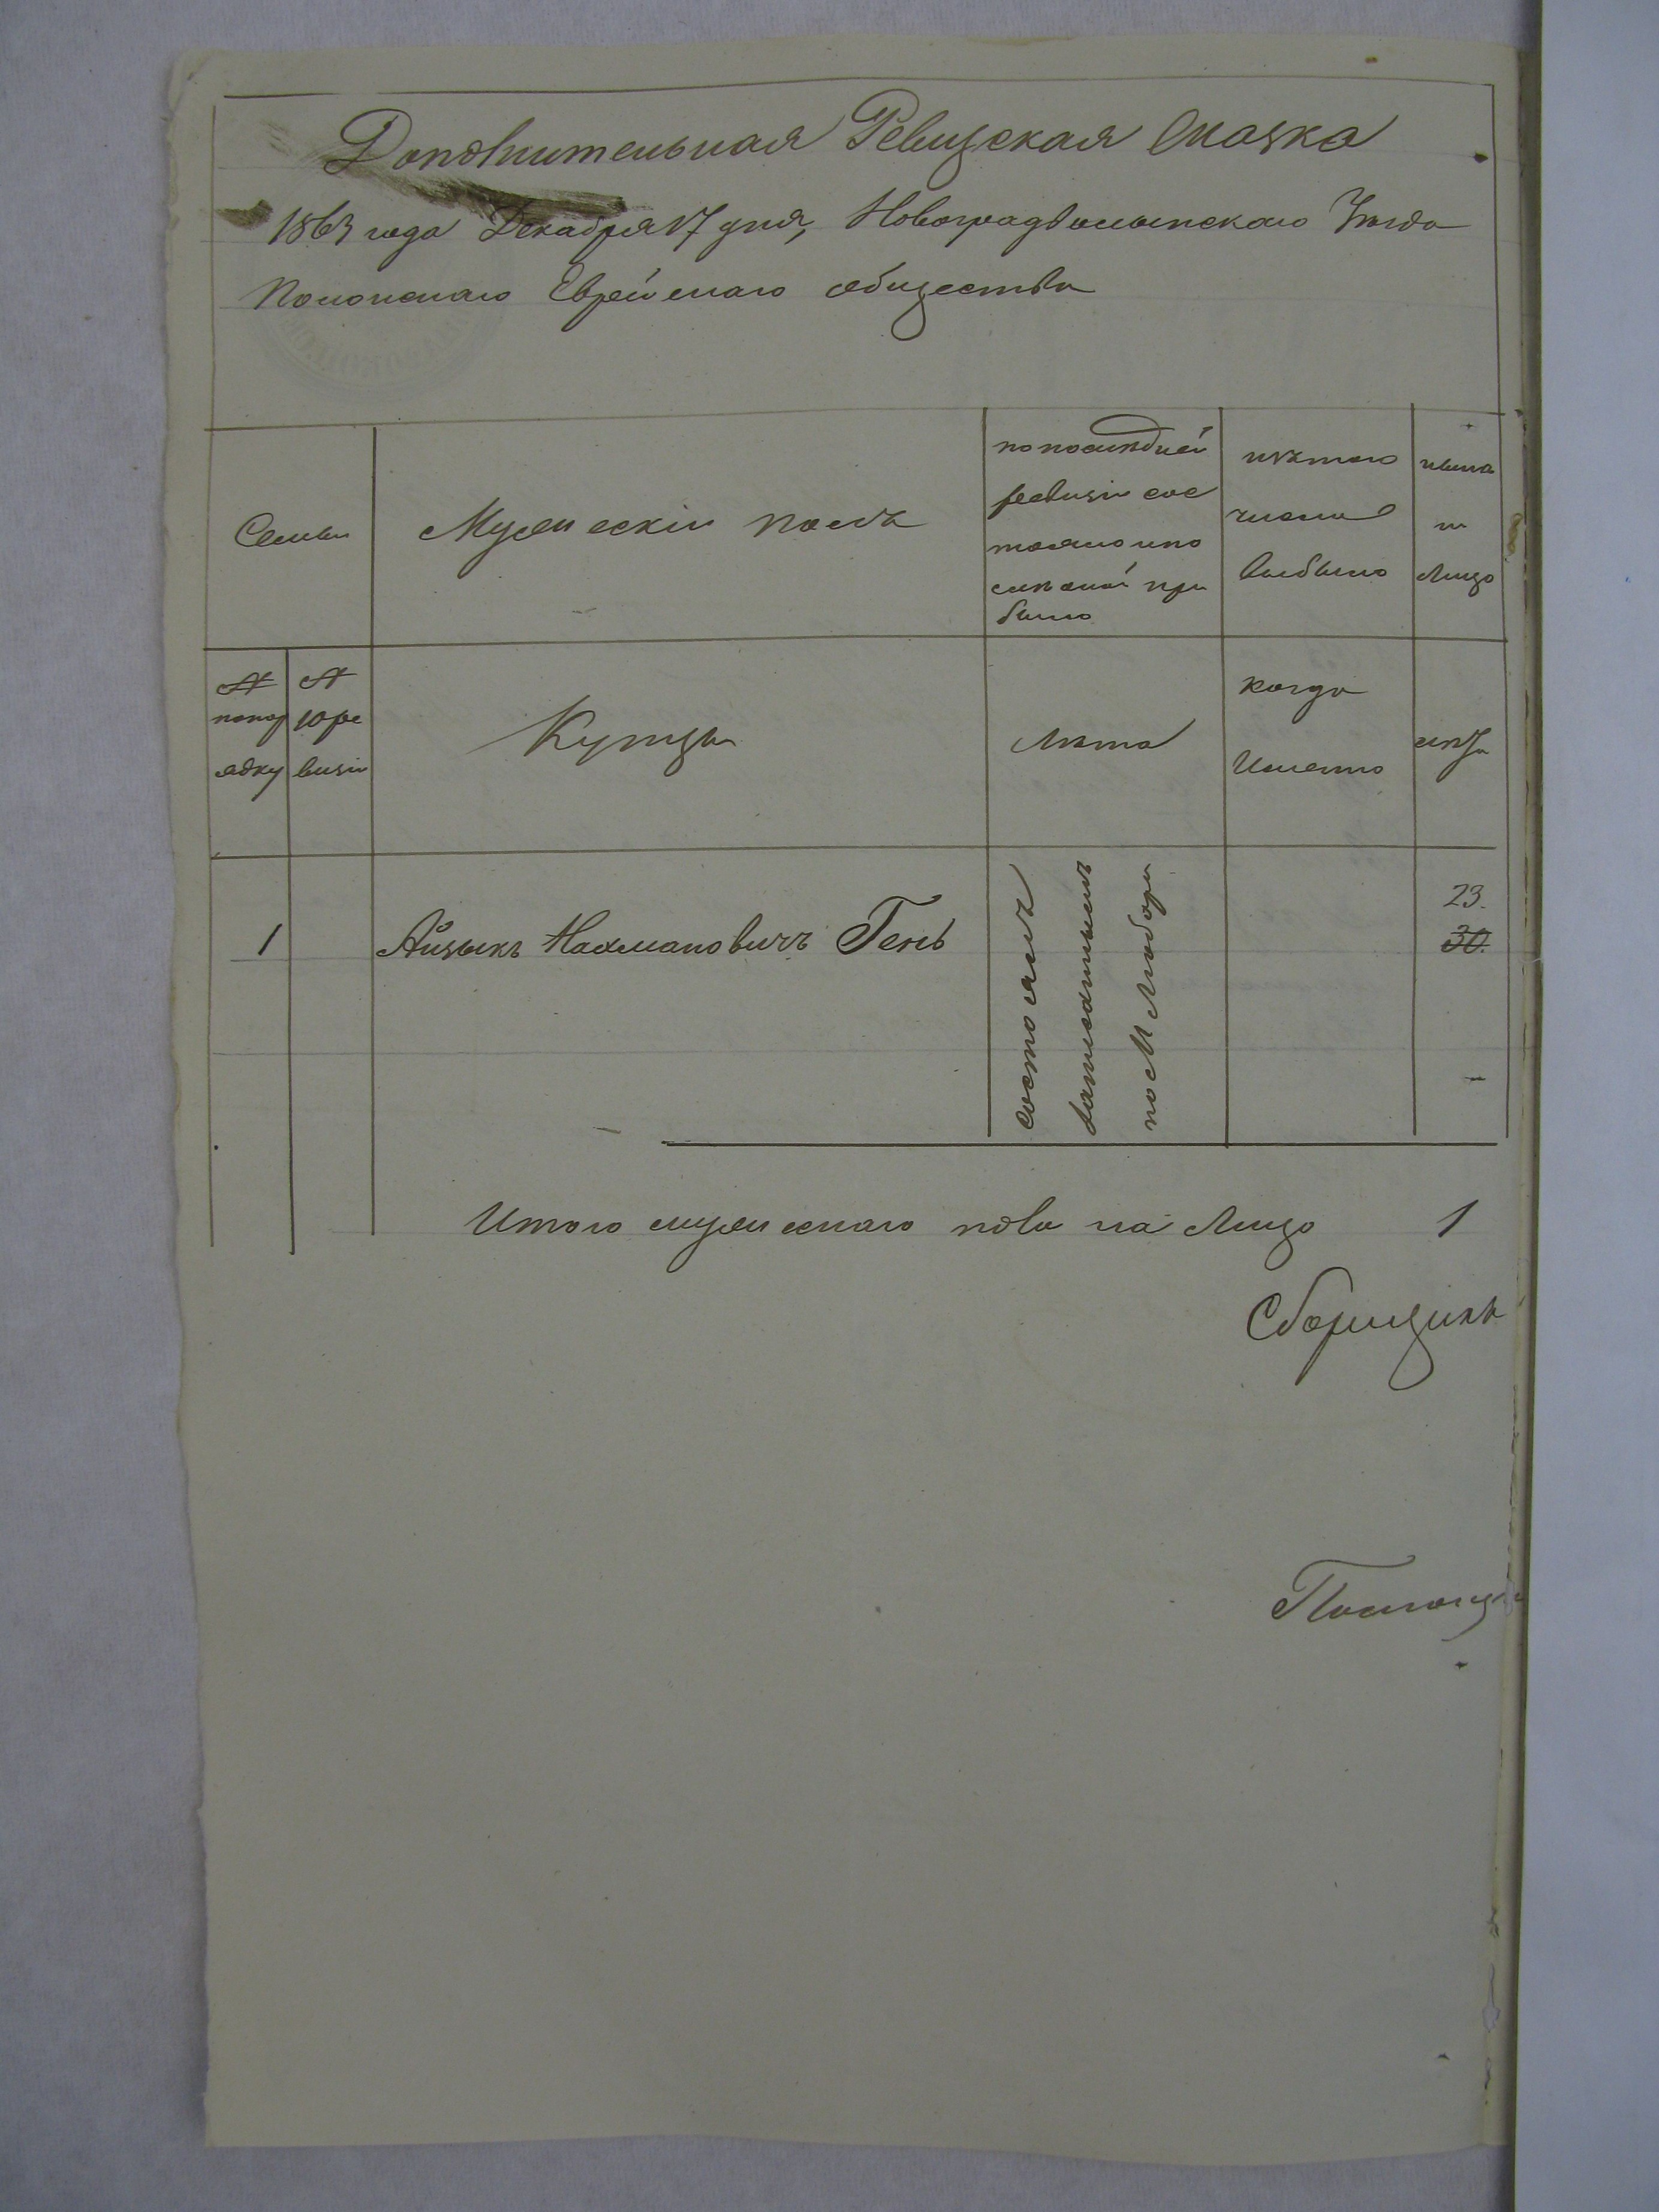 Дополнительная Ревизская Сказка
1863 года Декабря 17 дня, Новоградволынского Уезда
Полонского Еврейскаго общества
Семьи
Мужескій полъ
по последней
ревизіи сос
тояло и по
сле оной при
было
изъ того
числа
выбыло
ныне
на
Лицо
№
попор
ядку
№
поре
визіи
Купцы
Лета
когда
Именно
лета
1
Айзыкъ Нахмановичъ Гень
состоялъ
записаннымъ
по М Любару
23.
30.
Итого мужескаго пола на Лицо 1
Сборщикъ
Помощн